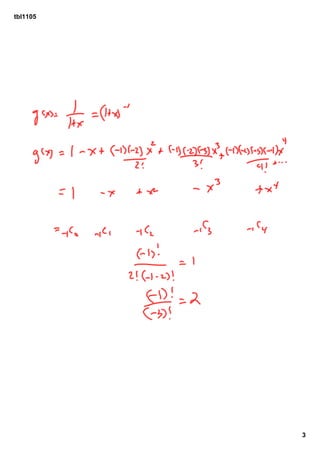 tbl1105
g(x) = 1/(1+x) = (1+x)^-1
g(x) = 1 - x + (-1)(-2)x^2/2! + (-1)(-2)(-3)x^3/3! + (-1)(-2)(-3)(-4)x^4/4! + ...
= 1 - x + x^2 - x^3 + x^4
= -1C0 -1C1 -1C2 -1C3 -1C4
(-1)!/(2!(-1-2)!) = 1
(-1)!/(-3)! = 2
3